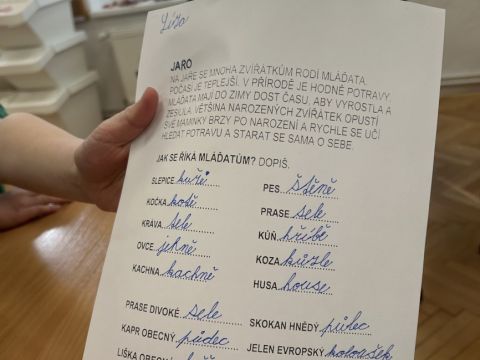 Líza
JARO
NA JAŘE SE MNOHA ZVÍŘÁTKŮM RODÍ MLÁĎATA.
POČASÍ JE TEPLEJŠÍ, V PŘÍRODĚ JE HODNĚ POTRAVY.
MLÁĎATA MAJÍ DO ZIMY DOST ČASU, ABY VYROSTLA A
ZESÍLILA. VĚTŠINA NAROZENÝCH ZVÍŘÁTEK OPUSTÍ
SVÉ MAMINKY BRZY PO NAROZENÍ A RYCHLE SE UČÍ
HLEDAT POTRAVU A STARAT SE SAMA O SEBE.
JAK SE ŘÍKÁ MLÁĎATŮM? DOPIŠ.
SLEPICE kuře PES štěně
KOČKA kotě PRASE sele
KRÁVA tele KŮŇ hříbě
OVCE jehně KOZA kůzle
KACHNA kachně HUSA house
PRASE DIVOKÉ sele SKOKAN HNĚDÝ pulec
KAPR OBECNÝ JELEN EVROPSKÝ koloušek
LIŠKA